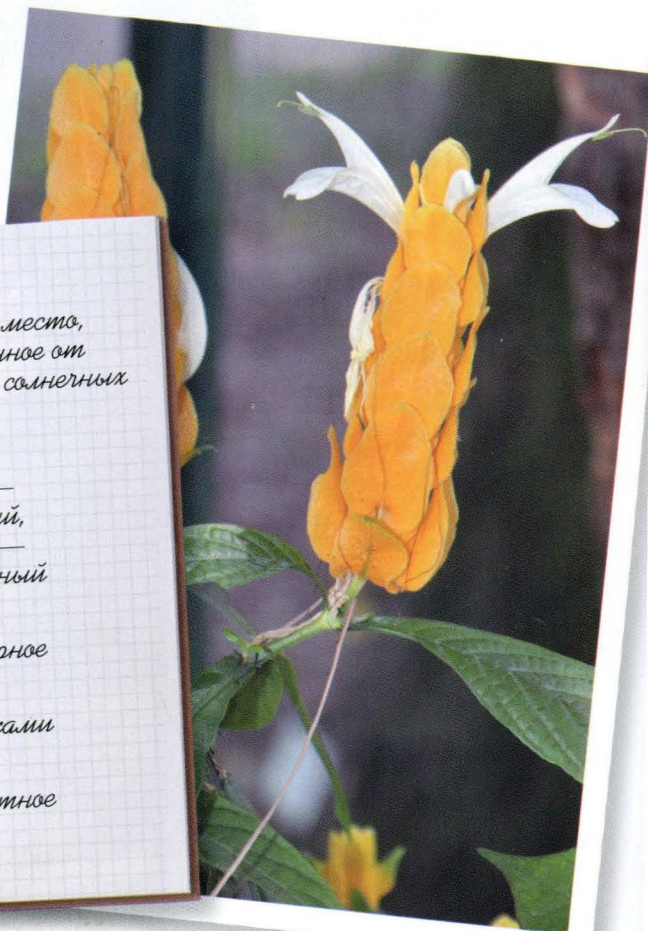 место,
ное от
солнечных
й,
ный
рное
ками
тное